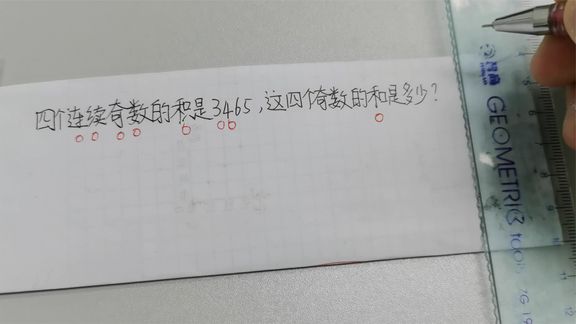 四个连续奇数的积是3465,这四个奇数的和是多少?
GEOMETRIC